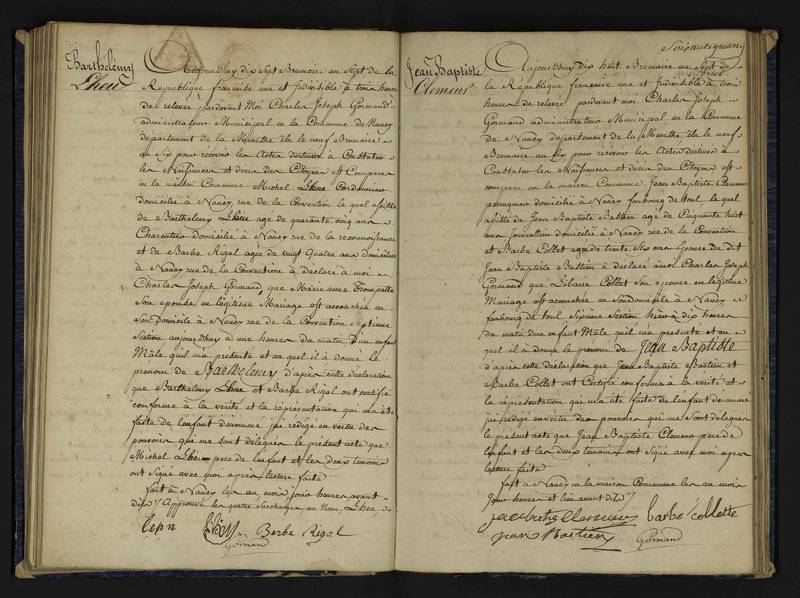 Barthelémy
Lheu
Aujourdhuy dix Sept Brumaire an Sept de la
République française une et Indivisible à trois heure
de relevée pardevant Moi Charles Joseph Gormand
administrateur Municipal en la Commune de Nancy
département de la Meurthe élu le neuf Brumaire
an Six pour recevoir les Actes destinés à Constater
les Naissances et décès des Citoyens est Comparu
en la maison Commune Michel Lheu Cordonnier
domicilié à Nancy, rue de la Convention le quel assisté
de Barthelemy Lheue age de quarante cinq ans
Charentier domicilié à Nancy rue de la reconnoissance
et de Barbe Rigal agée de vingt Quatre ans domiciliée
à Nancy rue de la Convention, à déclaré à moi
Charles Joseph Gormand, que Marie anne Trompette
Son epouse en légitime Mariage est accouchée en
son Domicile à Nancy rue de la Convention Septieme
Section aujourdhuy à une heures du matin d'un enfant
Mâle quil ma présenté et au quel il à donné le
prenom de Barthelemy d'après cette déclaration
que Barthelemy Lheue et Barbe Rigal ont certifié
conforme à la verité et la représentation qui ma été
faite de l'enfant denommé jai rédigé en vertu des
pouvoirs qui me sont délégués le présent acte que
Michel Lheu pere de lenfant et les deux temoins
ont Signé avec moi après lecture faite
fait à Nancy les an, mois, jour heures avant
dits / Approuvé les quatre Surcharges au Nom, Lheu
Barbe Rigal
Gormand
Jean Baptiste
Clemeur
Soixante quinze
Aujourdhuy dix huit Brumaire an Sept de
la République française une et Indivisible à trois
heures de relevée pardevant moi Charles Joseph
Gormand administrateur Municipal en la Commune
de Nancy département de la Meurthe élu le neuf
Brumaire an Six pour recevoir les Actes destinés à
Constater les Naissances et décès des Citoyens est
comparu en la maison Commune, Jean Baptiste Clemens
perruquier domicilié à Nancy faubourg de toul, le quel
assisté de Jean Baptiste Bastien age de Cinquante huit
ans Journallier domicilié à Nancy rue de la Convention
et Barbe Collet agée de trente Six ans Epouse du dit
Jean Baptiste Bastien à déclaré à moi Charles Joseph
Gormand que Libaire Collet Son epouse en légitime
Mariage est accouchée en son domicile à Nancy
faubourg de toul Sixieme Section hier à dix heures
du matin d'un enfant Mâle quil ma présenté et au
quel il à donné le prenom de Jean Baptiste
d'après cette déclaration que Jean Baptiste Bastien et
Barbe Collet ont Certifié conforme à la verité et
la représentation qui ma été faite de lenfant denommé
jai rédigé en vertu des pouvoirs qui me sont délégués
le présent acte que Jean Baptiste Clemens pere de
lenfant et les deux temoins ont signé avec moi après
lecture faite
fait à Nancy en la maison Commune les an mois
Jour heures et lieu avant dits
barbe collette
jean Bastien
Gormand